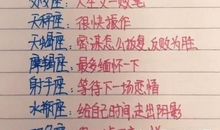 天秤座：很快振作
天蝎座：密谋怎么报复，反败为胜
摩羯座：最多缅怀一下
射手座：等待下一场恋情
水瓶座：给自己时间，走出阴影